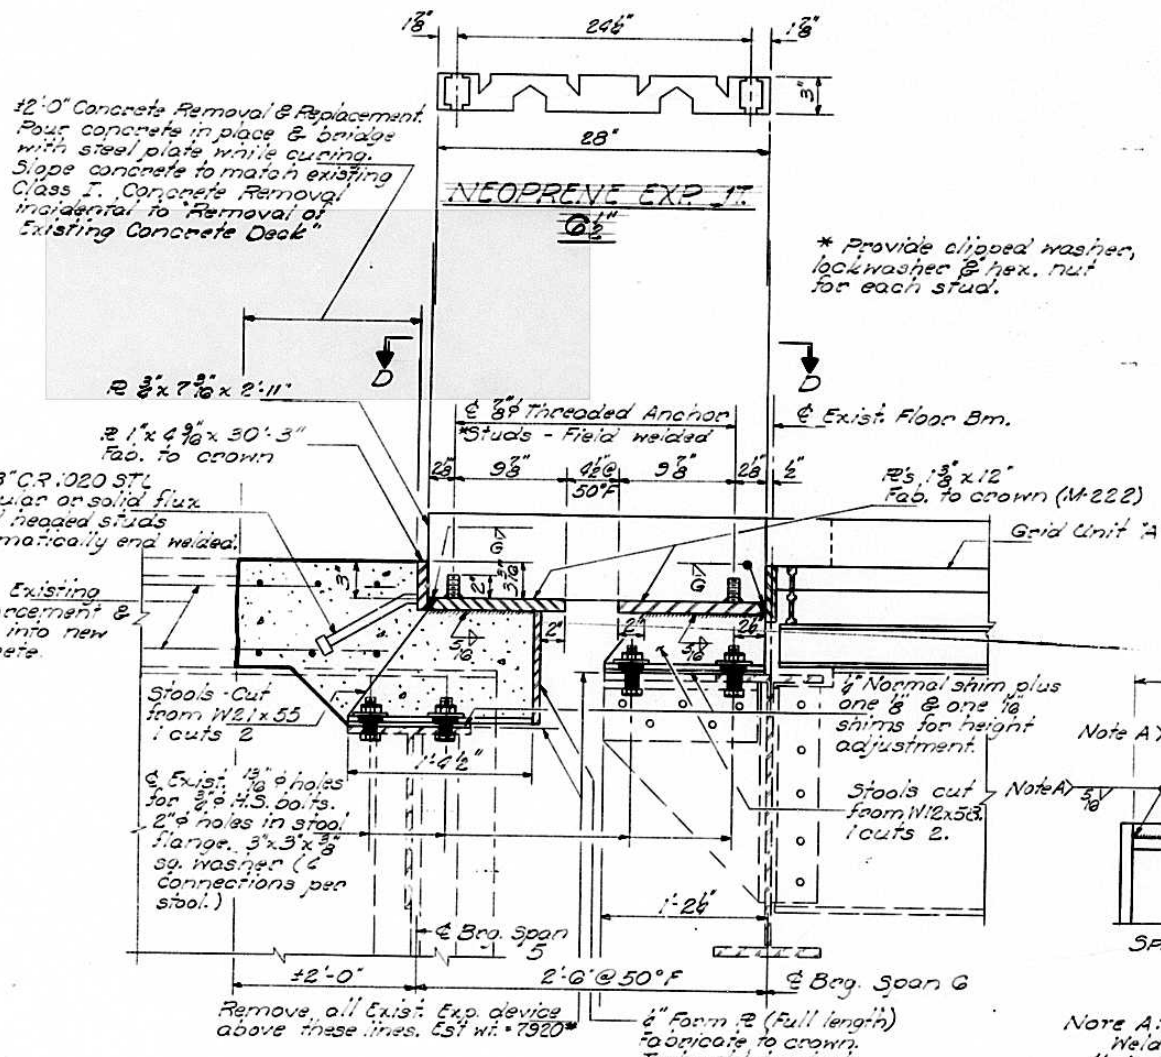 1⅞" 24¼" 1⅞"
3"
28"
NEOPRENE EXP. JT.
6½"
±2'-0" Concrete Removal & Replacement.
Pour concrete in place & bridge
with steel plate while curing.
Slope concrete to match existing
Class I. Concrete Removal
incidental to "Removal of
Existing Concrete Deck"
* Provide clipped washer,
lockwasher & hex. nut
for each stud.
D
D
7 9/16 x 2'-11"
℄ ⅞"φ Threaded Anchor
*Studs - Field welded
℄ Exist. Floor Bm.
℞ 1" x 4 9/16 x 30'-3"
Fab. to crown
2⅛" 9⅞" 4½"@ 9⅞" 2⅛" ½"
50°F
℞'s 1⅜" x 12"
Fab. to crown (M-222)
Grid Unit "A
C.R. 1020 STL
ular or solid flux
headed studs
matically end welded.
Existing
rcement &
into new
ete.
3"
2"
3 3/16"
G
G
2"
5/16
2"
5/16
Stools - Cut
from W21x55
1 cuts 2
¼" Normal shim plus
one ⅛" & one 1/16"
shims for height
adjustment.
1'-4½"
℄ Exist. 13/16"φ holes
for ¾"φ H.S. bolts.
2"φ holes in stool
flange. 3"x3"x⅜"
sq. washer (4
connections per
stool.)
Stools cut
from W12x58.
1 cuts 2.
Note A
Note A
5/16
1'-2¼"
℄ Brg. Span
5
±2'-0"
2'-6" @ 50°F
℄ Brg. Span 6
Remove all Exist. Exp. device
above these lines. Est wt. = 7920#
¼" Form ℞ (Full length)
Fabricate to crown.
Note A:
Weld